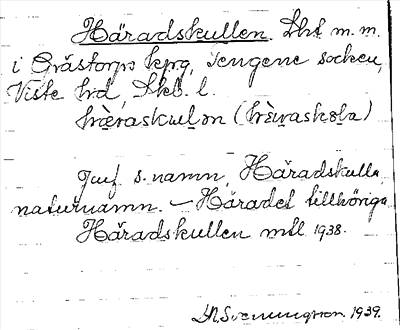 Häradskullen. Lht m.m.
i Grästorps kpg, Tengene socken,
Viste hrd, Skb. l.
hæ̀raskul̥ən (hæ̀raskəla)
Jmf s. namn Häradskulla,
naturnamn. — Häradet tillhöriga
Häradskullen mtl 1938.
D.A. Svenningson. 1939.